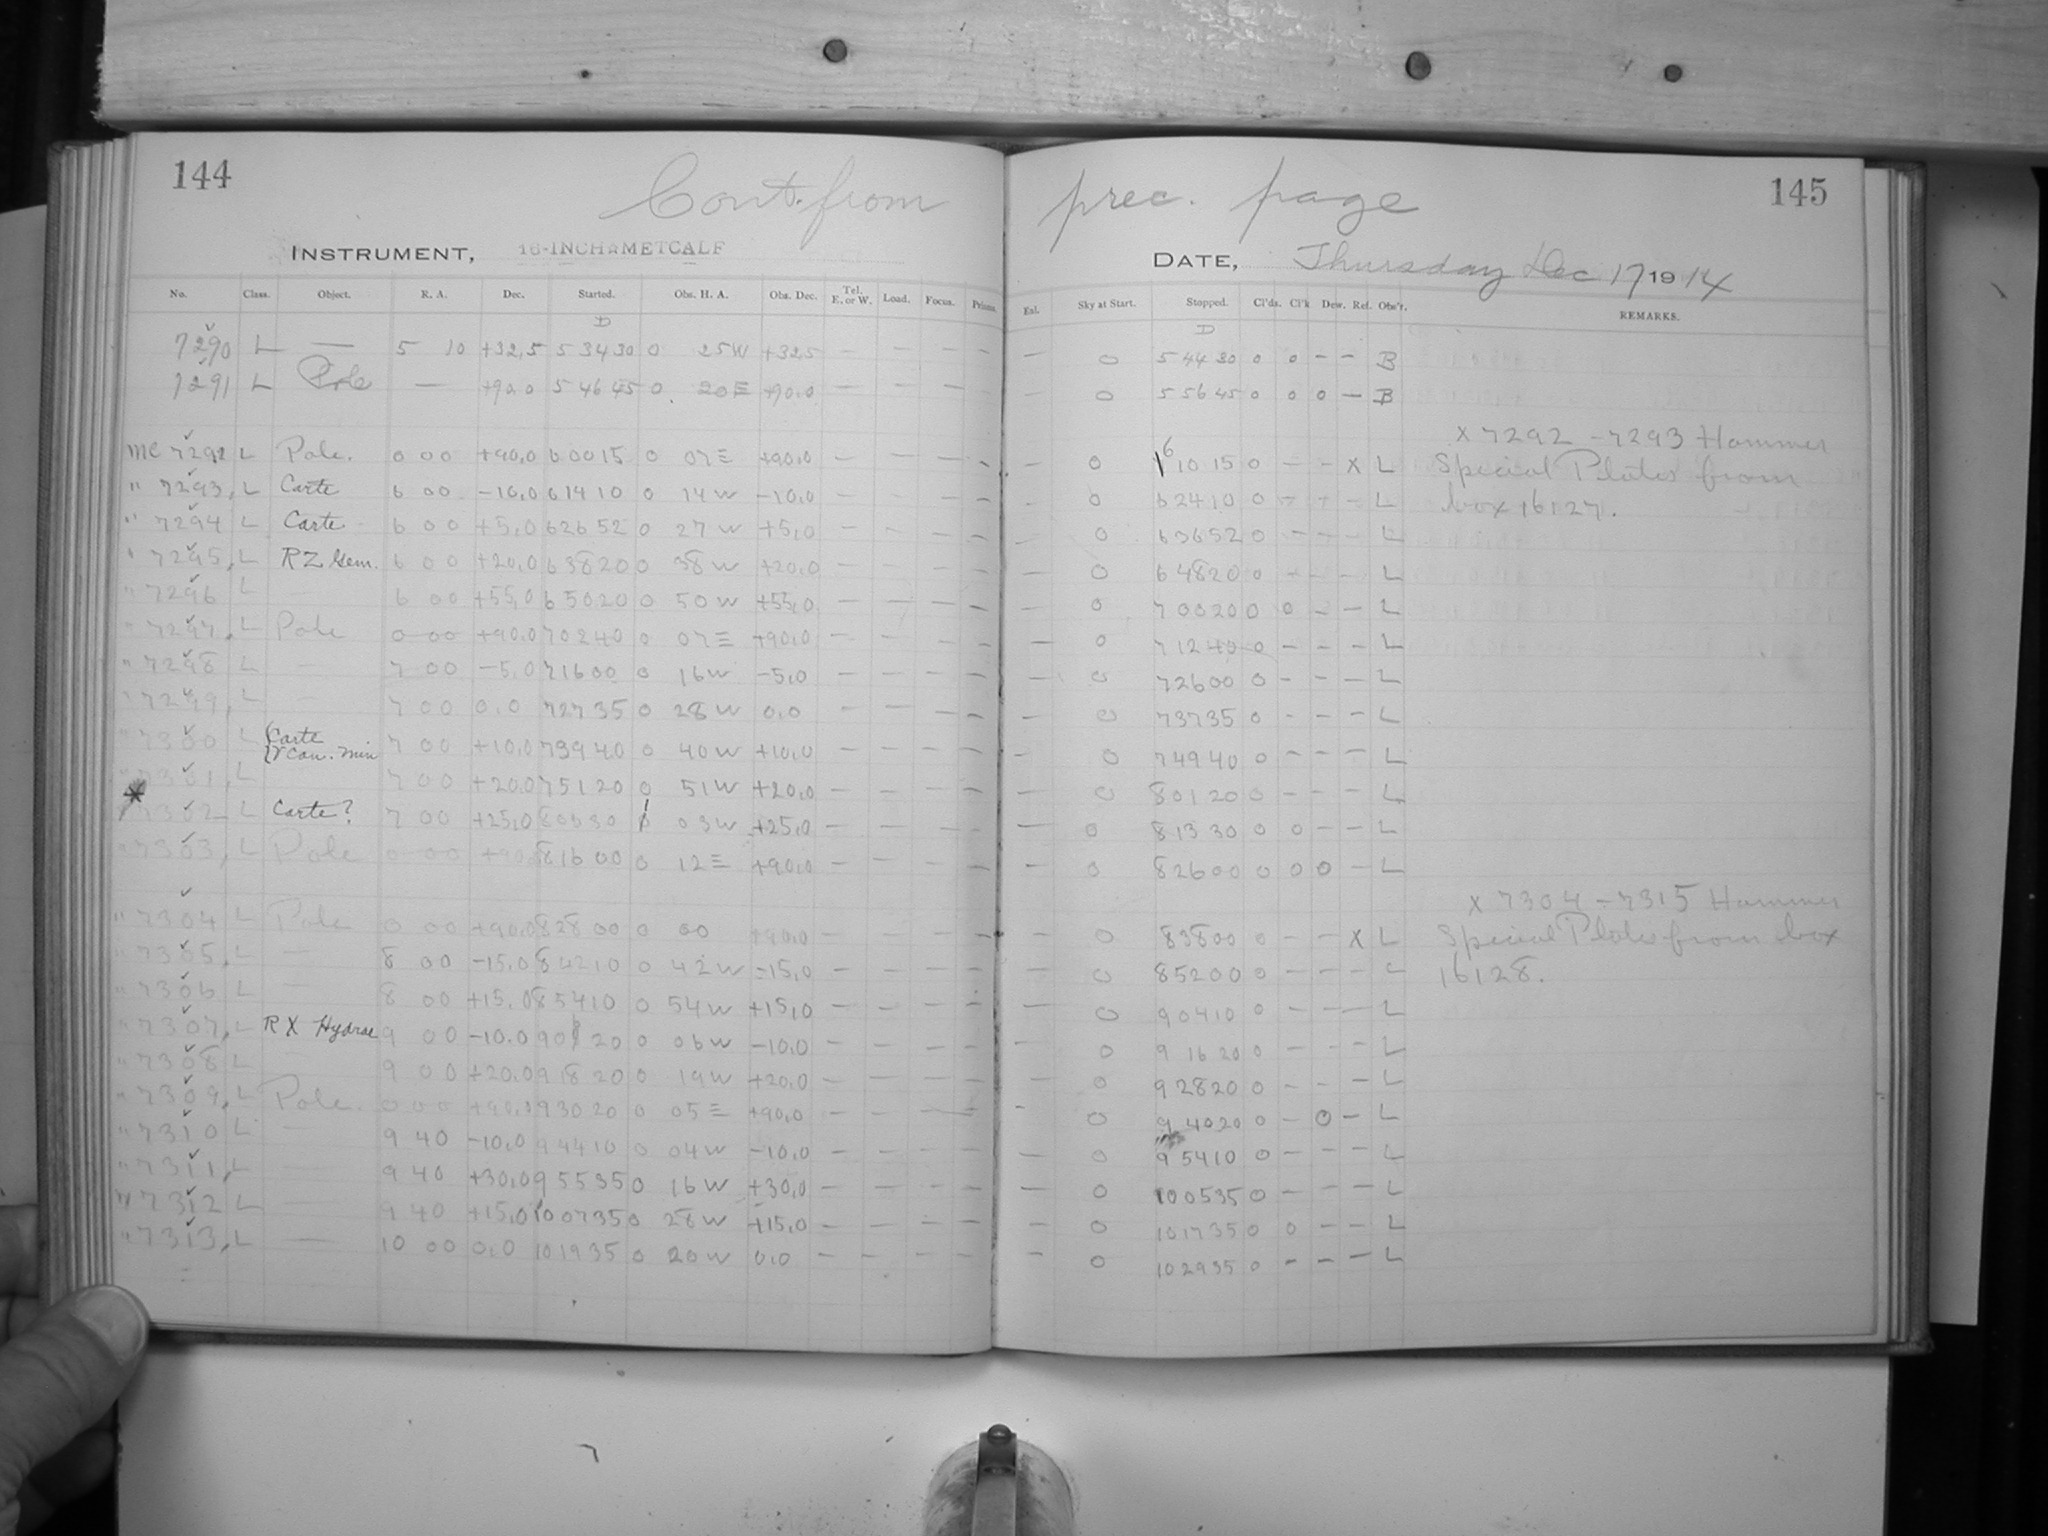 144
Cont. from prec. page
145
INSTRUMENT, 16-INCH METCALF
DATE, Thursday Dec 17 1914
No. Class. Object. R. A. Dec. Started. Obs. H. A. Obs. Dec. Tel. E. or W. Load. Focus. Prisms. Exl. Sky at Start. Stopped. Cl'ds. Cl'k Dew. Ref. Obs'r. REMARKS.
D D
7290 L — 5 10 +32,5 5 34 30 0 25 W +325 — — — — — 0 5 44 30 0 0 — — B
7291 L Pole — +90.0 5 46 45 0 20 E +90,0 — — — — — 0 5 56 45 0 0 0 — B
x 7292 – 7293 Hammer
MC 7292 L Pole. 0 00 +90,0 6 00 15 0 07 E +90,0 — — — — — 0 6 10 15 0 — — x L Special Plates from
" 7293, L Carte 6 00 –10,0 6 14 10 0 14 W –10,0 — — — — — 0 6 24 10 0 — — — L box 16127.
" 7294 L Carte 6 00 +5,0 6 26 52 0 27 W +5,0 — — — — — 0 6 36 52 0 — — — L
" 7295, L RZ Gem. 6 00 +20,0 6 38 20 0 38 W +20,0 — — — — — 0 6 48 20 0 — — — L
" 7296 L — 6 00 +55,0 6 50 20 0 50 W +55,0 — — — — — 0 7 00 20 0 0 — — L
" 7297, L Pole 0 00 +90,0 7 02 40 0 07 E +90,0 — — — — — 0 7 12 40 0 — — — L
" 7298 L — 7 00 –5,0 7 16 00 0 16 W –5,0 — — — — — 0 7 26 00 0 — — — L
" 7299, L — 7 00 0.0 7 27 35 0 28 W 0,0 — — — — — 0 7 37 35 0 — — — L
" 7300 L Carte
γ Can. Min 7 00 +10,0 7 39 40 0 40 W +10,0 — — — — — 0 7 49 40 0 — — — L
" 7301, L 7 00 +20,0 7 51 20 0 51 W +20,0 — — — — — 0 8 01 20 0 — — — L
* 7302 L Carte? 7 00 +25,0 8 03 30 1 03 W +25,0 — — — — — 0 8 13 30 0 0 — — L
" 7303, L Pole 0 00 +90,0 8 16 00 0 12 E +90,0 — — — — — 0 8 26 00 0 0 0 — L
x 7304 – 7315 Hammer
" 7304 L Pole 0 00 +90,0 8 28 00 0 00 +90,0 — — — — — 0 8 38 00 0 — — x L Special Plates from box
" 7305, L — 8 00 –15,0 8 42 10 0 42 W –15,0 — — — — — 0 8 52 00 0 — — — L 16128.
" 7306 L — 8 00 +15,0 8 54 10 0 54 W +15,0 — — — — — 0 9 04 10 0 — — — L
" 7307, L RX Hydrae 9 00 –10.0 9 0 20 0 06 W –10,0 — — — — — 0 9 16 20 0 — — — L
" 7308 L — 9 00 +20,0 9 18 20 0 19 W +20,0 — — — — — 0 9 28 20 0 — — — L
" 7309, L Pole. 0 00 +90,0 9 30 20 0 05 E +90,0 — — — — — 0 9 40 20 0 — 0 — L
" 7310 L — 9 40 –10,0 9 44 10 0 04 W –10,0 — — — — — 0 9 54 10 0 — — — L
" 7311, L — 9 40 +30,0 9 55 35 0 16 W +30,0 — — — — — 0 10 05 35 0 — — — L
" 7312 L — 9 40 +15,0 10 07 35 0 28 W +15,0 — — — — — 0 10 17 35 0 0 — — L
" 7313, L — 10 00 0,0 10 19 35 0 20 W 0,0 — — — — — 0 10 29 35 0 — — — L